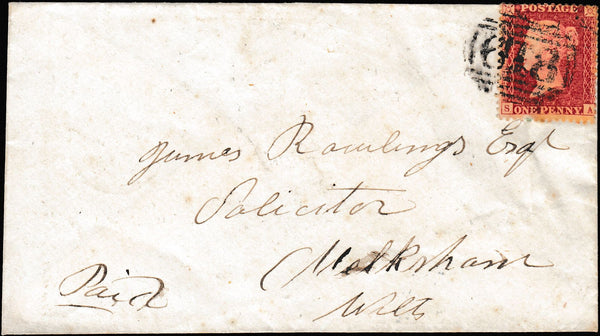 POSTAGE
S ONE PENNY A
James Rawlings Esqr
Solicitor
Melksham
Wilts
Paid